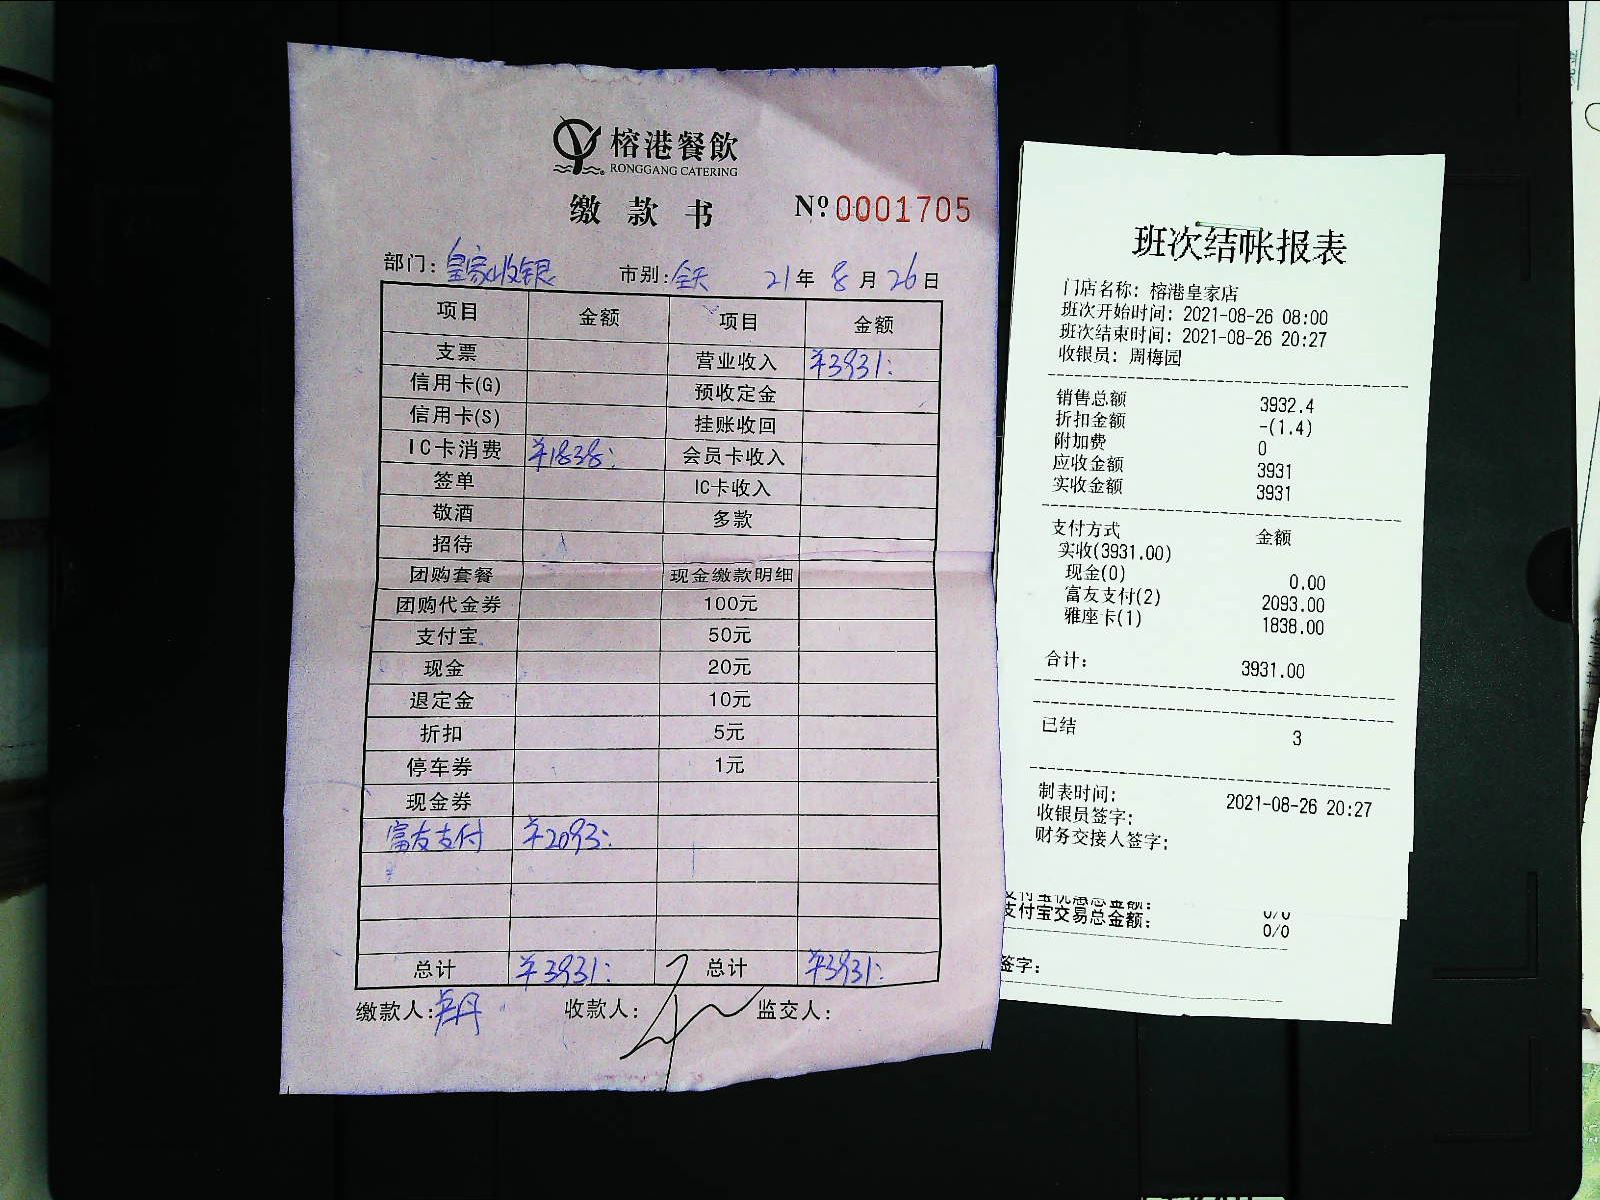 榕港餐飲
RONGGANG CATERING
缴款书 Nº0001705
部门：皇家收银 市别：全天 21年8月26日
项目 金额 项目 金额
支票 营业收入 ¥3931：
信用卡(G) 预收定金
信用卡(S) 挂账收回
IC卡消费 ¥1838： 会员卡收入
签单 IC卡收入
敬酒 多款
招待
团购套餐 现金缴款明细
团购代金券 100元
支付宝 50元
现金 20元
退定金 10元
折扣 5元
停车券 1元
现金券
富友支付 ¥2093：
总计 ¥3931： 总计 ¥3931：
缴款人： 收款人： 监交人：
班次结帐报表
门店名称：榕港皇家店
班次开始时间：2021-08-26 08:00
班次结束时间：2021-08-26 20:27
收银员：周梅园
销售总额 3932.4
折扣金额 -(1.4)
附加费 0
应收金额 3931
实收金额 3931
支付方式 金额
实收(3931.00)
现金(0) 0.00
富友支付(2) 2093.00
雅座卡(1) 1838.00
合计： 3931.00
已结 3
制表时间： 2021-08-26 20:27
收银员签字：
财务交接人签字：
支付宝交易总金额： 0/0
签字：